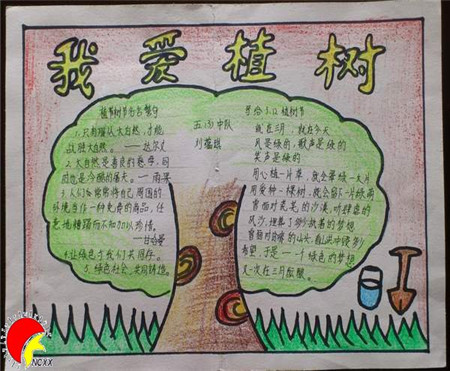 我爱植树
植树节名言警句
1.只有顺从大自然,才能
驭大自然。——达尔文
2.大自然是善良的慈母,同
时也是冷酷的屠夫。——雨果
3.人们如常常将自己周围的
环境当作一种免费的商品,任
意地糟蹋而不知加以珍惜。
——甘哈曼
4.让绿色与我们共同存。
5.绿色社会,共同铸造。
五(3)中队
刘
写给3.12植树节
就在三月,就在今天
风是绿的,歌声是绿的
笑声是绿的
用心植一片草,就会拿绿一大片
用爱种一棵树,就会留下一片绿荫
曾面对荒芜的沙漠,对肆虐的
风沙,埋葬了多少执着的梦想
曾面对的山头,
希望,于是一个绿色的梦想
又一次在三月酝酿。
NCXX